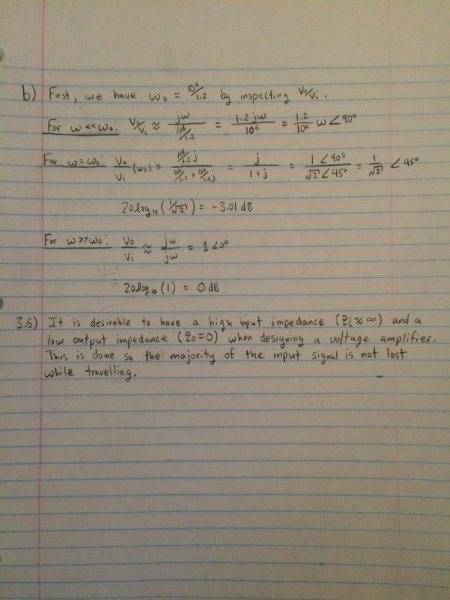 b) First, we have ω₀ = 10⁶/1.2 by inspecting Vo/Vi.
For ω<<ω₀: Vo/Vi ≈ jω / (10⁶/1.2) = 1.2jω / 10⁶ = 1.2/10⁶ ω ∠90°
For ω=ω₀: Vo/Vi (ω₀) = (10⁶/1.2 j) / (10⁶/1.2 + 10⁶/1.2 j) = j / (1+j) = 1∠90° / √2∠45° = 1/√2 ∠45°
20log₁₀(1/√2) = -3.01 dB
For ω>>ω₀: Vo/Vi ≈ jω/jω = 1∠0°
20log₁₀(1) = 0dB
3.5) It is desirable to have a high input impedance (Zi≈∞) and a
low output impedance (Zo≈0) when designing a voltage amplifier.
This is done so the majority of the input signal is not lost
while travelling.